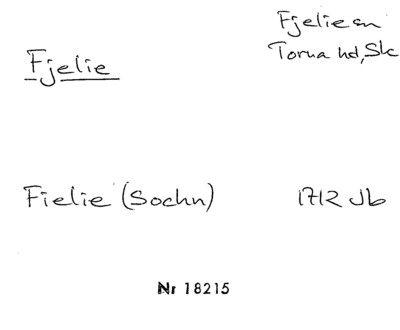 Fjelie sn
Torna hd, Sk
Fjelie
Fielie (Sochn) 1712 Jb
Nr 18215